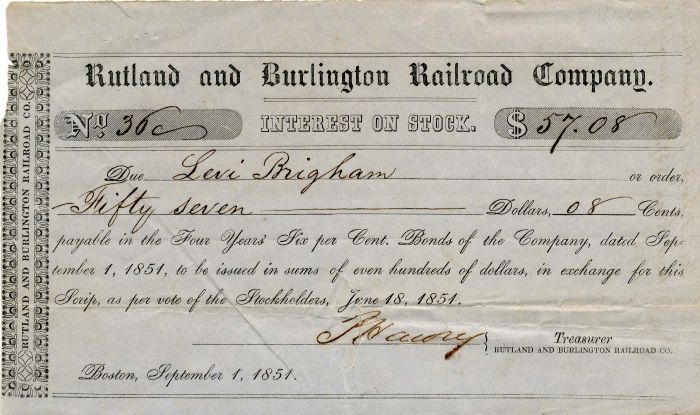 Rutland and Burlington Railroad Company.
No. 36
INTEREST ON STOCK.
$ 57.08
Due Levi Brigham or order,
Fifty seven Dollars, 08 Cents,
payable in the Four Years' Six per Cent. Bonds of the Company, dated Sep-
tember 1, 1851, to be issued in sums of even hundreds of dollars, in exchange for this
Scrip, as per vote of the Stockholders, June 18, 1851.
Treasurer
RUTLAND AND BURLINGTON RAILROAD CO.
Boston, September 1, 1851.
RUTLAND AND BURLINGTON RAILROAD CO.